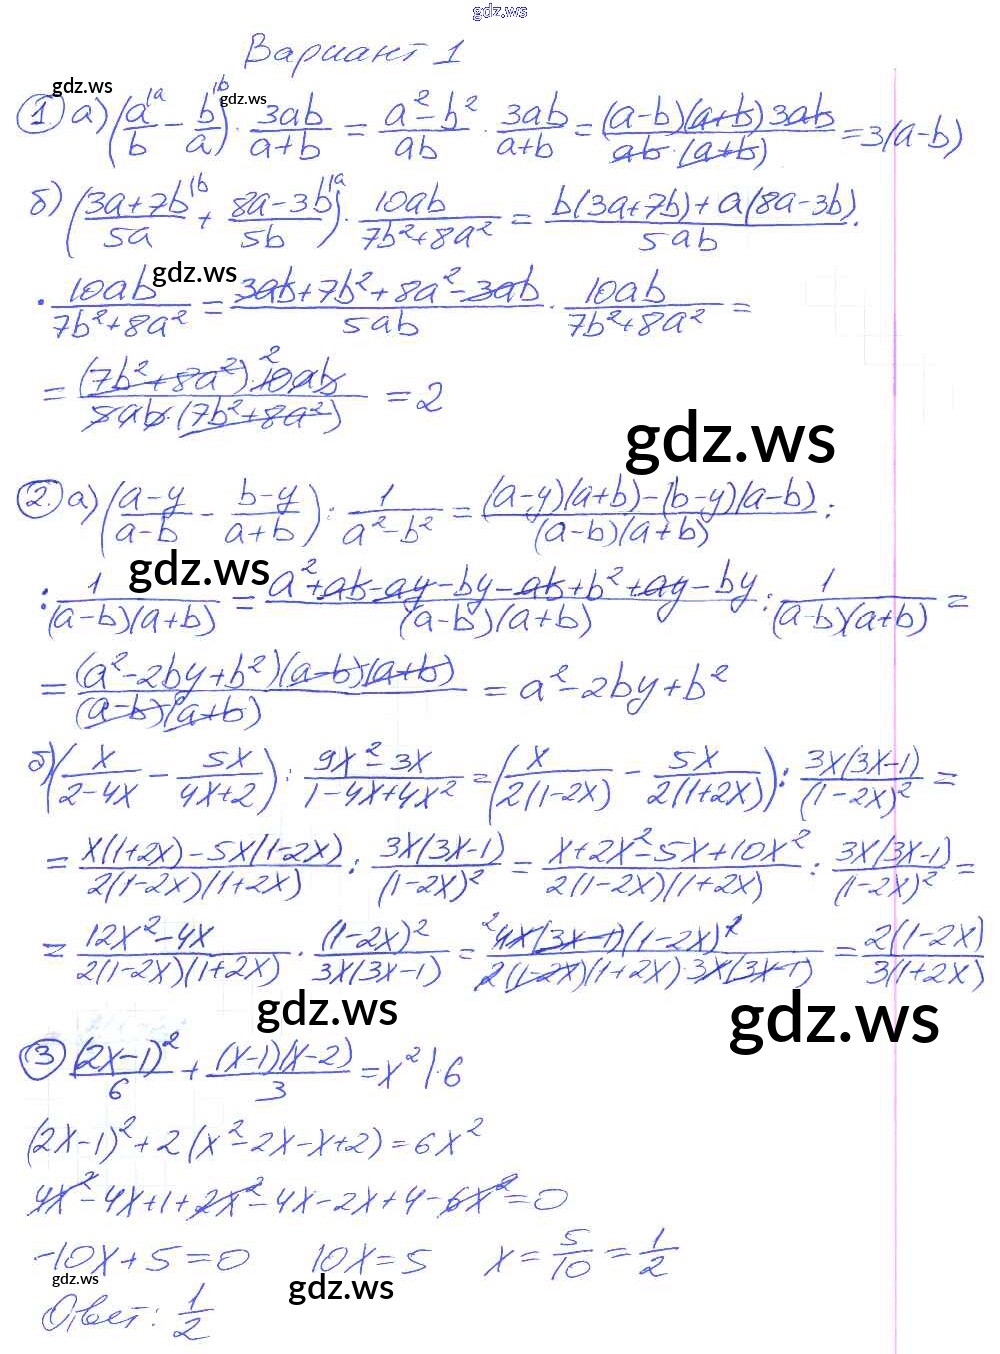 gdz.ws
Вариант 1
gdz.ws
1. а) (a/b |a − b/a |b) · 3ab/(a+b) = (a² − b²)/ab · 3ab/(a+b) = (a−b)(a+b)3ab/(ab·(a+b)) = 3(a−b)
gdz.ws
б) ((3a+7b)/5a |b + (8a−3b)/5b |a) · 10ab/(7b²+8a²) = (b(3a+7b)+a(8a−3b))/5ab ·
gdz.ws
· 10ab/(7b²+8a²) = (3ab+7b²+8a²−3ab)/5ab · 10ab/(7b²+8a²) =
= (7b²+8a²)·10ab 2/(5ab·(7b²+8a²)) = 2
gdz.ws
2. а) ((a−y)/(a−b) − (b−y)/(a+b)) : 1/(a²−b²) = ((a−y)(a+b)−(b−y)(a−b))/((a−b)(a+b)) :
gdz.ws
: 1/((a−b)(a+b)) = (a²+ab−ay−by−ab+b²+ay−by)/((a−b)(a+b)) : 1/((a−b)(a+b)) =
= (a²−2by+b²)(a−b)(a+b)/((a−b)(a+b)) = a²−2by+b²
б) (x/(2−4x) − 5x/(4x+2)) : (9x²−3x)/(1−4x+4x²) = (x/(2(1−2x)) − 5x/(2(1+2x))) : 3x(3x−1)/(1−2x)² =
= (x(1+2x)−5x(1−2x))/(2(1−2x)(1+2x)) : 3x(3x−1)/(1−2x)² = (x+2x²−5x+10x²)/(2(1−2x)(1+2x)) : 3x(3x−1)/(1−2x)² =
= (12x²−4x)/(2(1−2x)(1+2x)) · (1−2x)²/(3x(3x−1)) = 2 4x(3x−1)(1−2x)²/(2(1−2x)(1+2x)·3x(3x−1)) = 2(1−2x)/(3(1+2x))
gdz.ws
gdz.ws
3 (2x−1)²/6 + (x−1)(x−2)/3 = x² |·6
(2x−1)²+2(x²−2x−x+2)=6x²
4x²−4x+1+2x²−4x−2x+4−6x²=0
−10x+5=0 10x=5 x=5/10=1/2
gdz.ws
gdz.ws
Ответ: 1/2